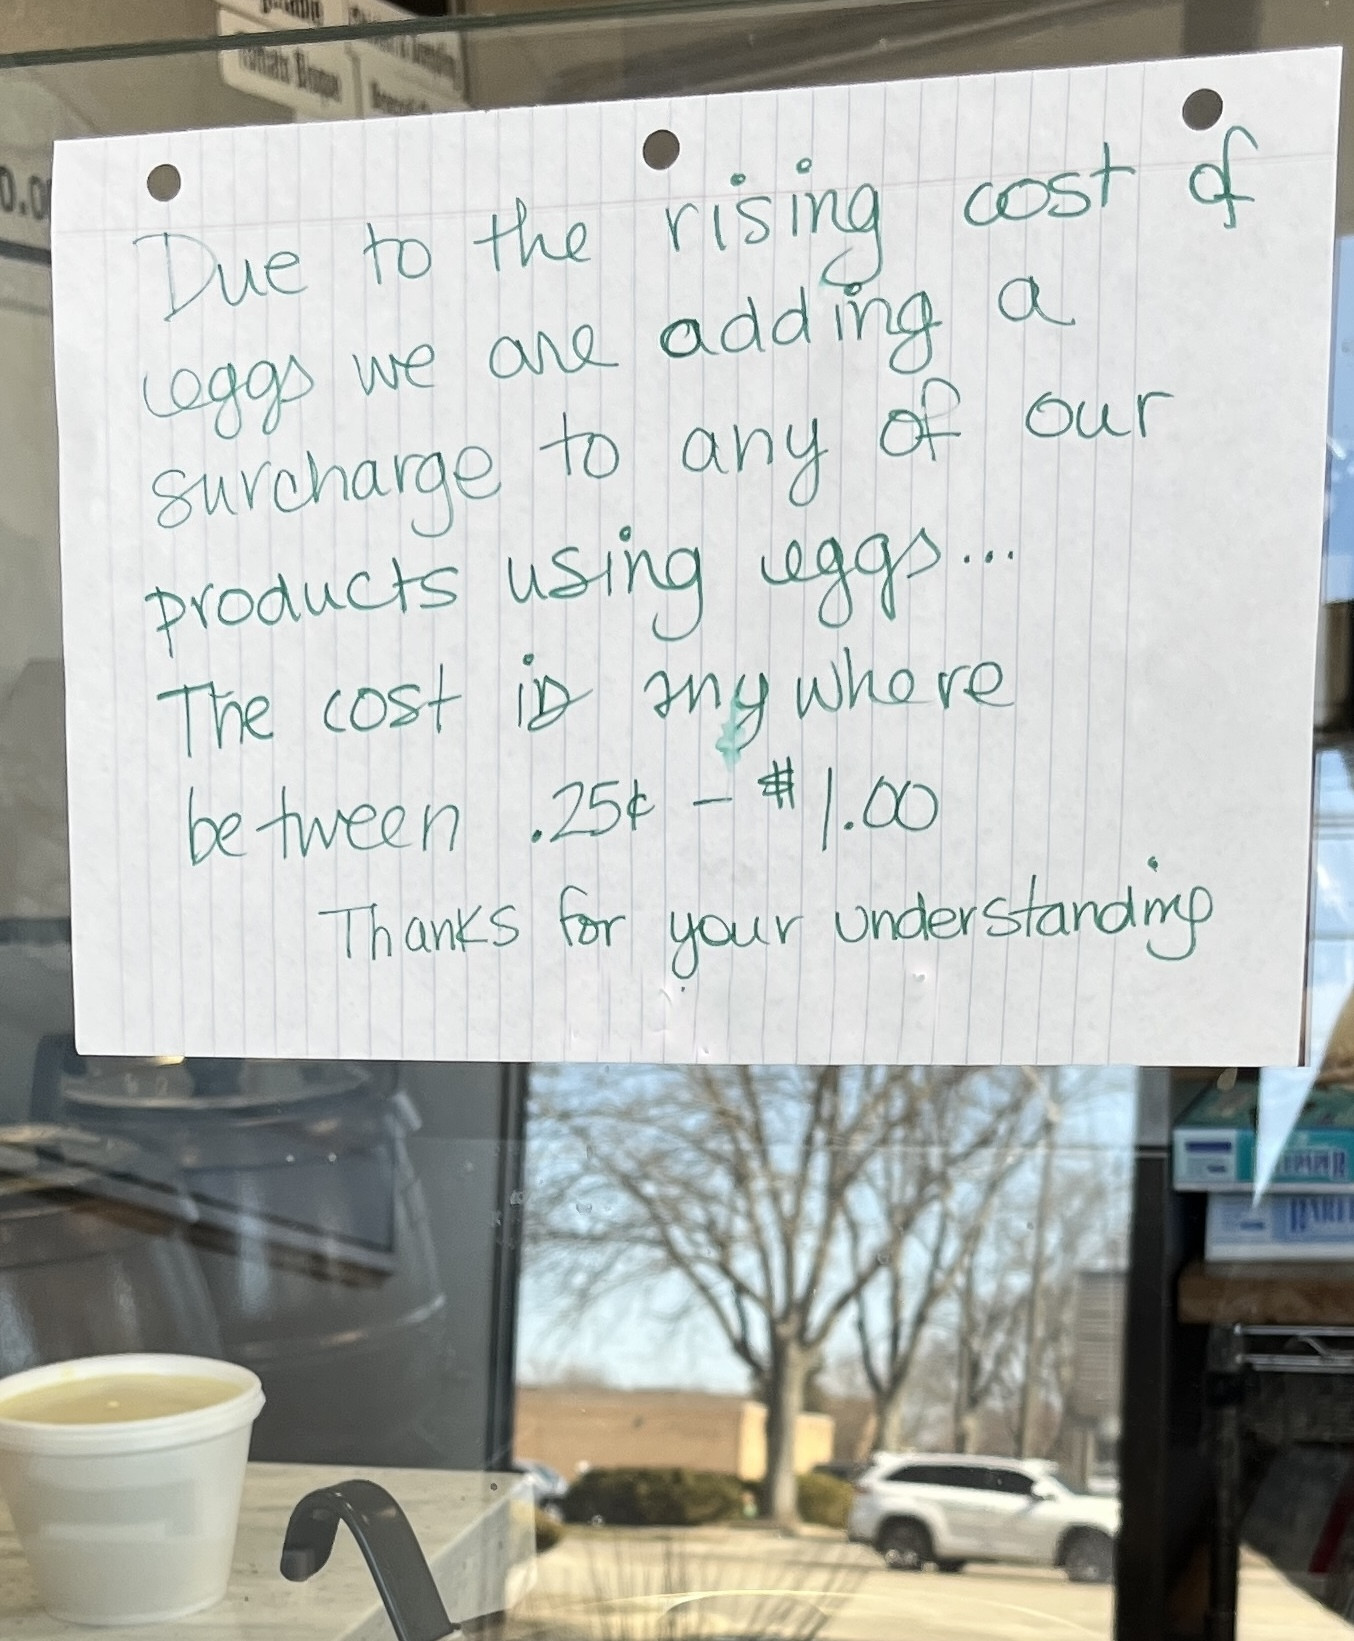 Due to the rising cost of
eggs we are adding a
surcharge to any of our
products using eggs...
The cost is anywhere
between .25¢ - $1.00
Thanks for your understanding